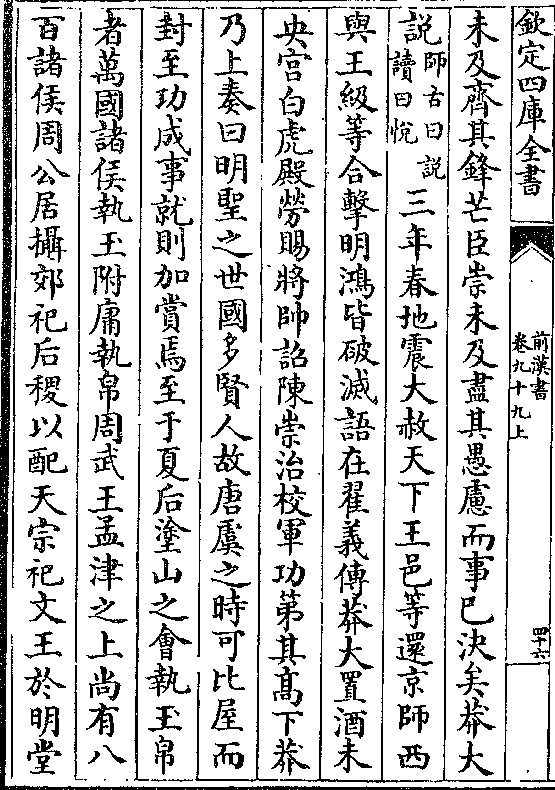 欽定四庫全書
前漢書
卷九十九上
四十六
未及齊其鋒芒臣崇未及盡其愚慮而事已決矣莽大
説師古曰説
讀曰悅
三年春地震大赦天下王邑等還京師西
與王級等合擊明鴻皆破滅語在翟義傳莽大置酒未
央宫白虎殿勞賜將帥詔陳崇治校軍功第其髙下莽
乃上奏曰明聖之世國多賢人故唐虞之時可比屋而
封至功成事就則加賞焉至于夏后塗山之會執玉帛
者萬國諸侯執玉附庸執帛周武王孟津之上尚有八
百諸侯周公居攝郊祀后稷以配天宗祀文王於明堂